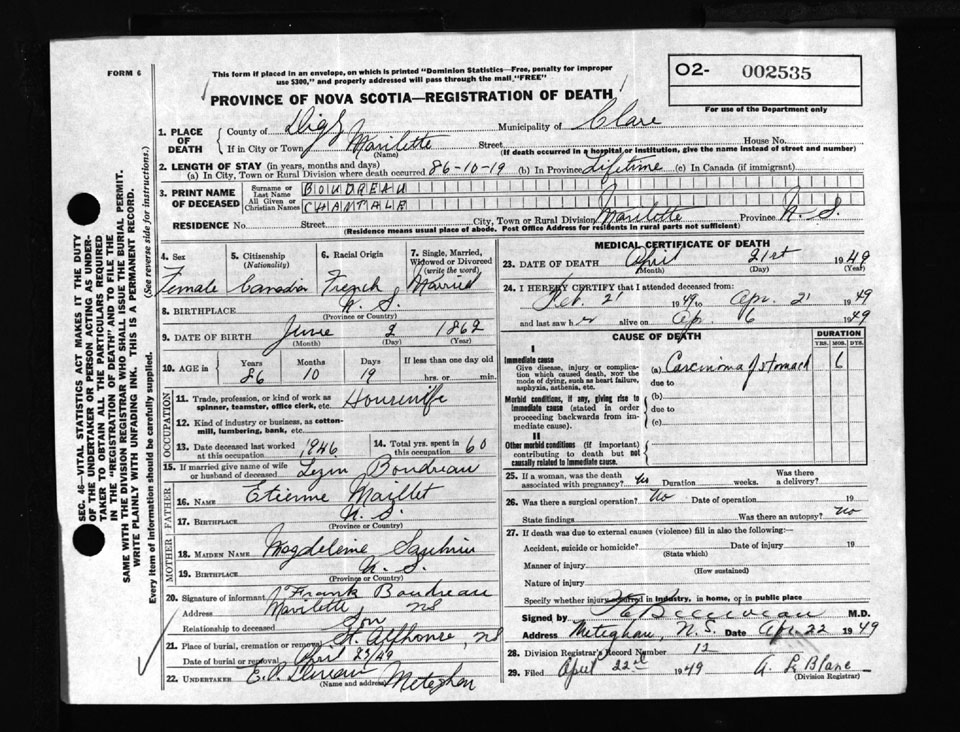 FORM 6
This form if placed in an envelope, on which is printed "Dominion Statistics—Free, penalty for improper
use $300," and properly addressed will pass through the mail "FREE"
PROVINCE OF NOVA SCOTIA—REGISTRATION OF DEATH
O2- 002535
For use of the Department only
SEC. 46—VITAL STATISTICS ACT MAKES IT THE DUTY
OF THE UNDERTAKER OR PERSON ACTING AS UNDER-
TAKER TO OBTAIN ALL THE PARTICULARS REQUIRED
IN THE "REGISTRATION OF DEATH" AND TO FILE THE
SAME WITH THE DIVISION REGISTRAR WHO SHALL ISSUE THE BURIAL PERMIT.
WRITE PLAINLY WITH UNFADING INK. THIS IS A PERMANENT RECORD.
Every item of information should be carefully supplied. (See reverse side for instructions.)
1. PLACE OF DEATH
County of Digby Municipality of Clare
If in City or Town Mavilette Street House No.
(Name) (If death occurred in a hospital or institution, give the name instead of street and number)
2. LENGTH OF STAY (in years, months and days)
(a) In City, Town or Rural Division where death occurred 86-10-19 (b) In Province Lifetime (c) In Canada (if immigrant)
3. PRINT NAME OF DECEASED
Surname or Last Name BOUDREAU
All Given or Christian Names CHANTALE
RESIDENCE No. Street City, Town or Rural Division Mavilette Province N. S.
(Residence means usual place of abode. Post Office Address for residents in rural parts not sufficient)
4. Sex Female
5. Citizenship (Nationality) Canadian
6. Racial Origin French
7. Single, Married, Widowed or Divorced (write the word) Married
8. BIRTHPLACE N. S.
(Province or Country)
9. DATE OF BIRTH June 2 1862
(Month) (Day) (Year)
10. AGE in Years 86 Months 10 Days 19 If less than one day old
hrs. or min.
OCCUPATION
11. Trade, profession, or kind of work as spinner, teamster, office clerk, etc. Housewife
12. Kind of industry or business, as cotton-mill, lumbering, bank, etc.
13. Date deceased last worked at this occupation 1946
14. Total yrs. spent in this occupation 60
15. If married give name of wife or husband of deceased Boudreau
FATHER
16. NAME Etienne Maillet
17. BIRTHPLACE N. S.
(Province or Country)
MOTHER
18. MAIDEN NAME Magdeleine Saulnier
19. BIRTHPLACE N. S.
(Province or Country)
20. Signature of informant Frank Boudreau
Address Mavilette NS
Relationship to deceased Son
21. Place of burial, cremation or removal St. Alphonse, NS
Date of burial or removal April /49
22. UNDERTAKER E. Meteghan
(Name and address)
MEDICAL CERTIFICATE OF DEATH
23. DATE OF DEATH April 21st 1949
(Month) (Day) (Year)
24. I HEREBY CERTIFY that I attended deceased from:
Feb. 21 1949 to Apr. 21 1949
and last saw her alive on Ap. 6 1949
CAUSE OF DEATH
DURATION
YRS. MOS. DYS.
I
Immediate cause
Give disease, injury or complication which caused death, NOT the mode of dying, such as heart failure, asphyxia, asthenia, etc.
(a) Carcinoma of stomach 6
due to
Morbid conditions, if any, giving rise to immediate cause (stated in order proceeding backwards from immediate cause).
(b)
due to
(c)
II
Other morbid conditions (if important) contributing to death but not causally related to immediate cause.
25. If a woman, was the death associated with pregnancy? No Duration weeks. Was there a delivery?
26. Was there a surgical operation? No Date of operation 19
State findings Was there an autopsy? No
27. If death was due to external causes (violence) fill in also the following:—
Accident, suicide or homicide? Date of injury 19
(State which)
Manner of injury
(How sustained)
Nature of injury
Specify whether injury occurred in industry, in home, or in public place
Signed by M.D.
Address Meteghan, N.S. Date Apr 22 1949
28. Division Registrar's Record Number 12
29. Filed April 22nd 1949 A. LeBlanc
(Division Registrar)